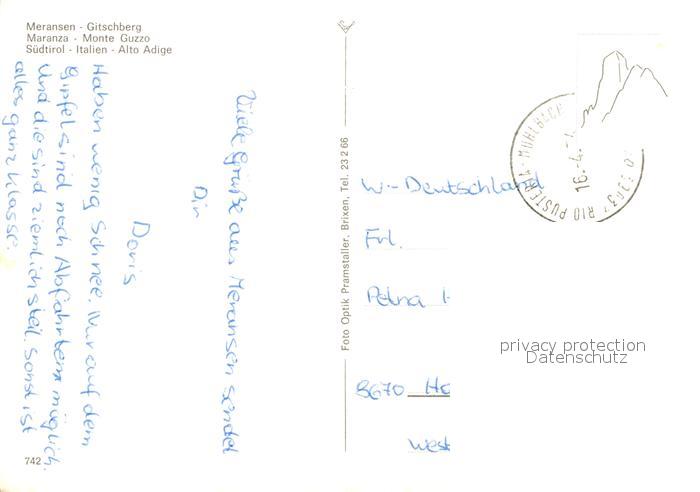 Meransen - Gitschberg
Maranza - Monte Guzzo
Südtirol - Italien - Alto Adige
Viele Grüße aus Meransen sendet
Dir
Doris
Haben wenig Schnee. Nur auf dem
Gipfel sind noch Abfahrten möglich.
Und die sind ziemlich steil. Sonst ist
alles ganz klasse.
742
Foto Optik Pramstaller, Brixen, Tel. 23 2 66
RIO PUSTERIA - MÜHLBACH
16.-4.
W.-Deutschland
Frl.
Petra
8670 Ho
West
privacy protection
Datenschutz